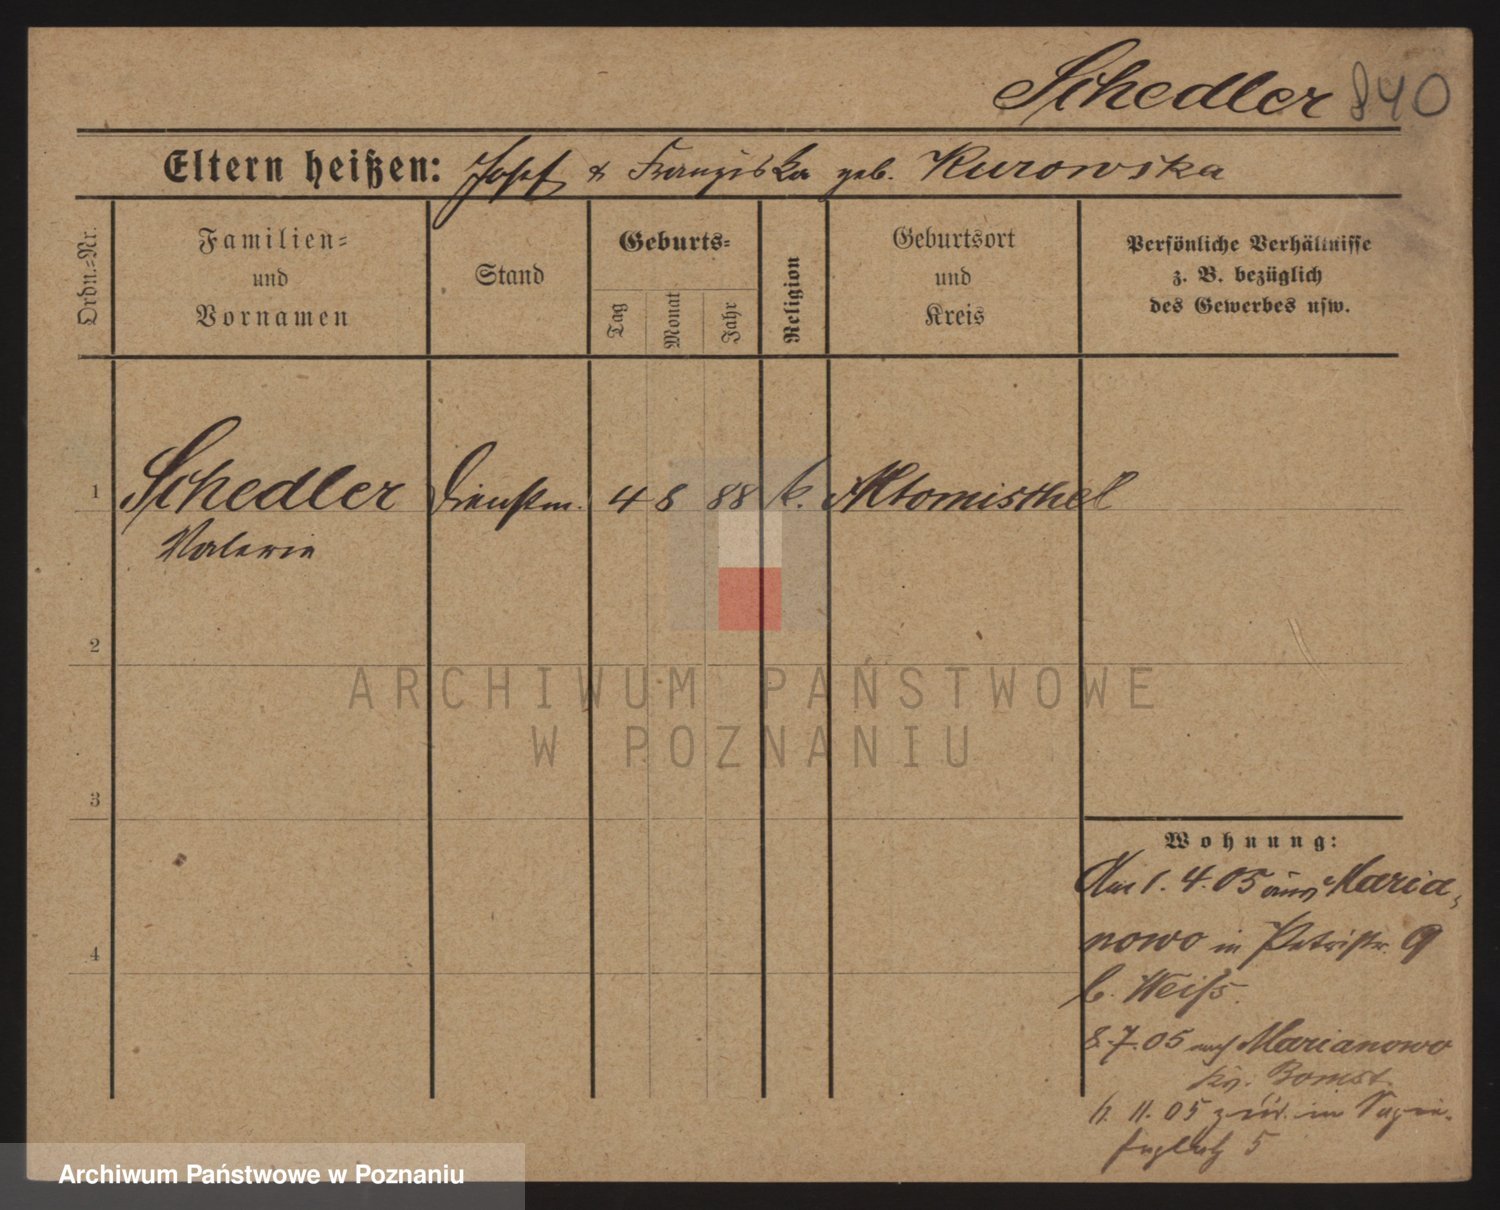 Schedler 840
Eltern heißen: Josef & Franziska geb. Kurowska
Ordn.=Nr.
Familien=
und
Vornamen
Stand
Geburts=
Tag
Monat
Jahr
Religion
Geburtsort
und
Kreis
Persönliche Verhältnisse
z. B. bezüglich
des Gewerbes usw.
1 Schedler Dienstm. 4 8 88 k. Altomisthel
Valerie
2
ARCHIWUM PAŃSTWOWE
W POZNANIU
3
Wohnung:
Am 1. 4. 05 aus Maria
nowo in Petristr. 9
b. Weiß.
4
8. 7. 05 nach Marianowo
Kr. Bomst.
11. 05 zur. in
5
Archiwum Państwowe w Poznaniu